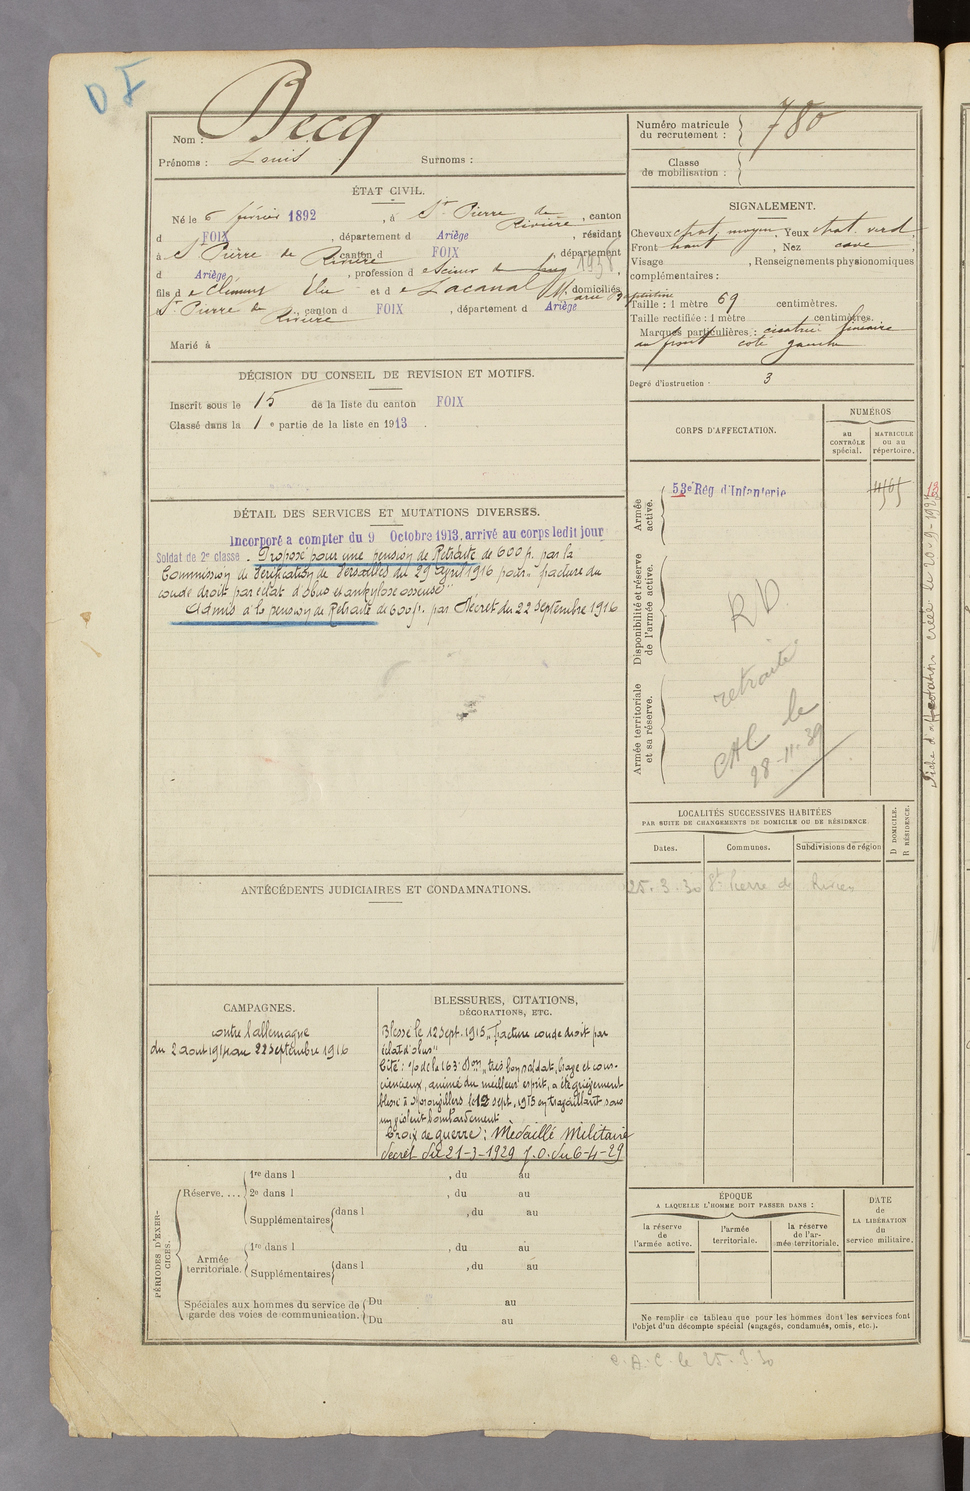 D F
Nom : Becq
Prénoms : Louis Surnoms :
ÉTAT CIVIL.
Né le 6 février 1892, à St Pierre de Rivière, canton
d FOIX, département d Ariège, résidant
à St Pierre de Rivière canton d FOIX, département
d Ariège, profession d e Scieur de long 1938,
fils d e Clément Élie et d e Lacanal Marie Baptistine, domiciliés
à St Pierre de Rivière, canton d FOIX, département d Ariège
Marié à
DÉCISION DU CONSEIL DE REVISION ET MOTIFS.
Inscrit sous le 15 de la liste du canton FOIX
Classé dans la 1e partie de la liste en 1913.
DÉTAIL DES SERVICES ET MUTATIONS DIVERSES.
Incorporé à compter du 9 Octobre 1913, arrivé au corps ledit jour
Soldat de 2e classe. Proposé pour une pension de Retraite de 600 f. par la
Commission de Vérification de Versailles du 29 avril 1916 pour "fracture du
coude droit par éclat d'obus et ankylose osseuse"
Admis à la pension de Retraite de 600 f. par Décret du 22 septembre 1916
ANTÉCÉDENTS JUDICIAIRES ET CONDAMNATIONS.
CAMPAGNES.
contre l'allemagne
du 2 aout 1914 au 22 septembre 1916
BLESSURES, CITATIONS,
DÉCORATIONS, ETC.
Blessé le 12 sept. 1915 "fracture coude droit par
éclat d'obus"
Cité : % de la 163e Don "très bon soldat, brave et cons-
ciencieux, animé du meilleur esprit, a été grièvement
blessé à Mourgillers le 12 sept. 1915 en travaillant sous
un violent bombardement
Croix de guerre : Médaillé Militaire
décret du 21-3-1929 J.O. du 6-4-29
PÉRIODES D'EXERCICES.
Réserve....
1re dans l , du au
2e dans l , du au
Supplémentaires dans l , du au
Armée territoriale.
1re dans l , du au
Supplémentaires dans l , du au
Spéciales aux hommes du service de garde des voies de communication.
Du au
Du au
Numéro matricule du recrutement : 780
Classe de mobilisation :
SIGNALEMENT.
Cheveux chat. moyen, Yeux chat. verd,
Front haut, Nez cave,
Visage , Renseignements physionomiques
complémentaires :
Taille : 1 mètre 69 centimètres.
Taille rectifiée : 1 mètre centimètres.
Marques particulières : cicatrice linéaire
au front coté gauche
Degré d'instruction : 3
CORPS D'AFFECTATION.
NUMÉROS
au CONTRÔLE spécial.
MATRICULE ou au répertoire.
Armée active.
53e Rég d'Infanterie
Disponibilité et réserve de l'armée active.
Armée territoriale et sa réserve.
RD
retraité
CAC le
28-11-38
Fiche d'affectation créée le 20-9-1927
LOCALITÉS SUCCESSIVES HABITÉES
PAR SUITE DE CHANGEMENTS DE DOMICILE OU DE RÉSIDENCE
D DOMICILE. R RÉSIDENCE.
Dates. Communes. Subdivisions de région
25.3.30 St Pierre de Rivière
ÉPOQUE
A LAQUELLE L'HOMME DOIT PASSER DANS :
la réserve de l'armée active.
l'armée territoriale.
la réserve de l'armée territoriale.
DATE de LA LIBÉRATION du service militaire.
Ne remplir ce tableau que pour les hommes dont les services font
l'objet d'un décompte spécial (engagés, condamnés, omis, etc.).
C.A.C. le 25.3.30